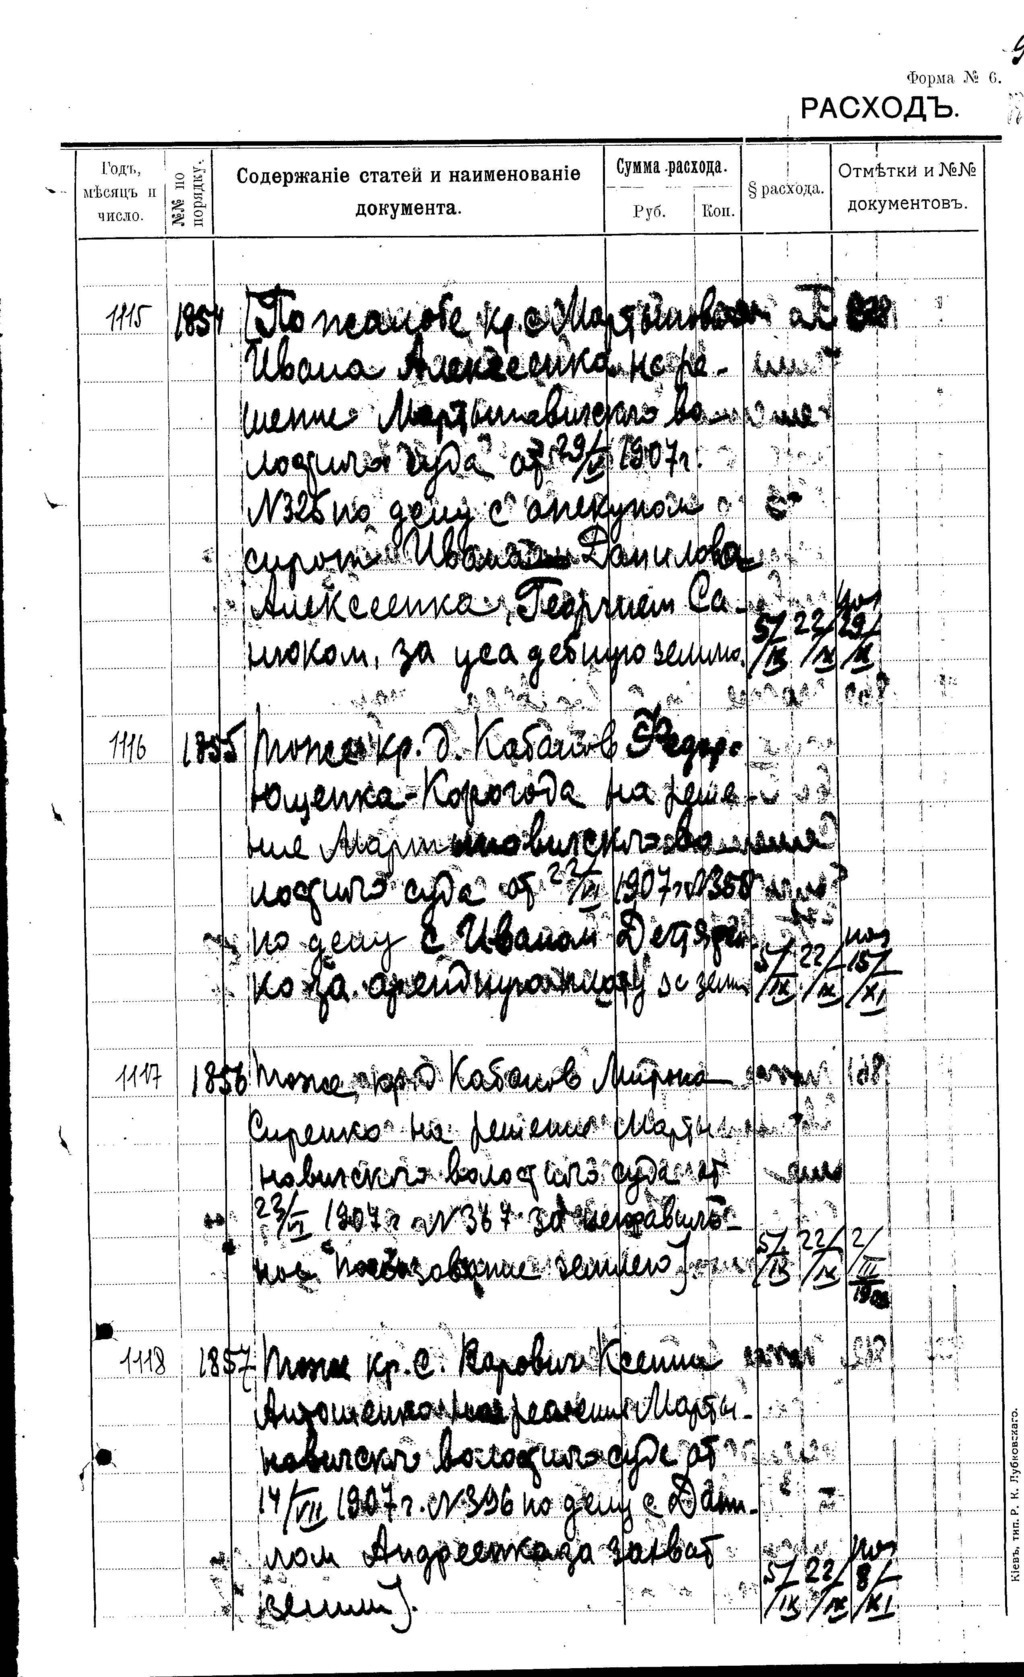 Форма № 6.
РАСХОДЪ.
Годъ, мѣсяцъ и число.
№№ по порядку.
Содержаніе статей и наименованіе документа.
Сумма расхода.
Руб. Коп.
§ расхода.
Отмѣтки и №№ документовъ.
1115 1854 [По жалобе кр. с. Мартынович
Ивана Алексеенка на ре-
шение Мартыновичского во-
лостного суда от 29/V 1907 г.
N 325 по делу с опекуном
сирот Ивана Данилова
Алексеенка, Георгием Са-
нюком, за усадебную землю. 5/IX 22/IX 29/X
1116 1855 Тоже кр. д. Кабанов Федор
ющенка-Корогода на реше-
ние Мартыновичского во-
лостного суда от 22/VI 1907 г. N 358
по делу с Иваном
ко за арендную плату за земл. 5/IX 22/IX 15/XI
1117 1856 Тоже кр. д. Кабанов Мирона
Сиренко на решение Марты-
новичского волостного суда от
23/VI 1907 г. N 367 за неправиль-
ное пользование землею] 5/IX 22/IX 2/III 1908
1118 1857 Тоже кр. с. Карович Ксении
Антошенко на решение Марты-
новичского волостного суда от
14/VII 1907 г. N 396 по делу с Дани-
лом Андреенка за захват
земли]. 5/IX 22/IX 8/XI
Кіевъ, тип. Р. К. Лубковскаго.